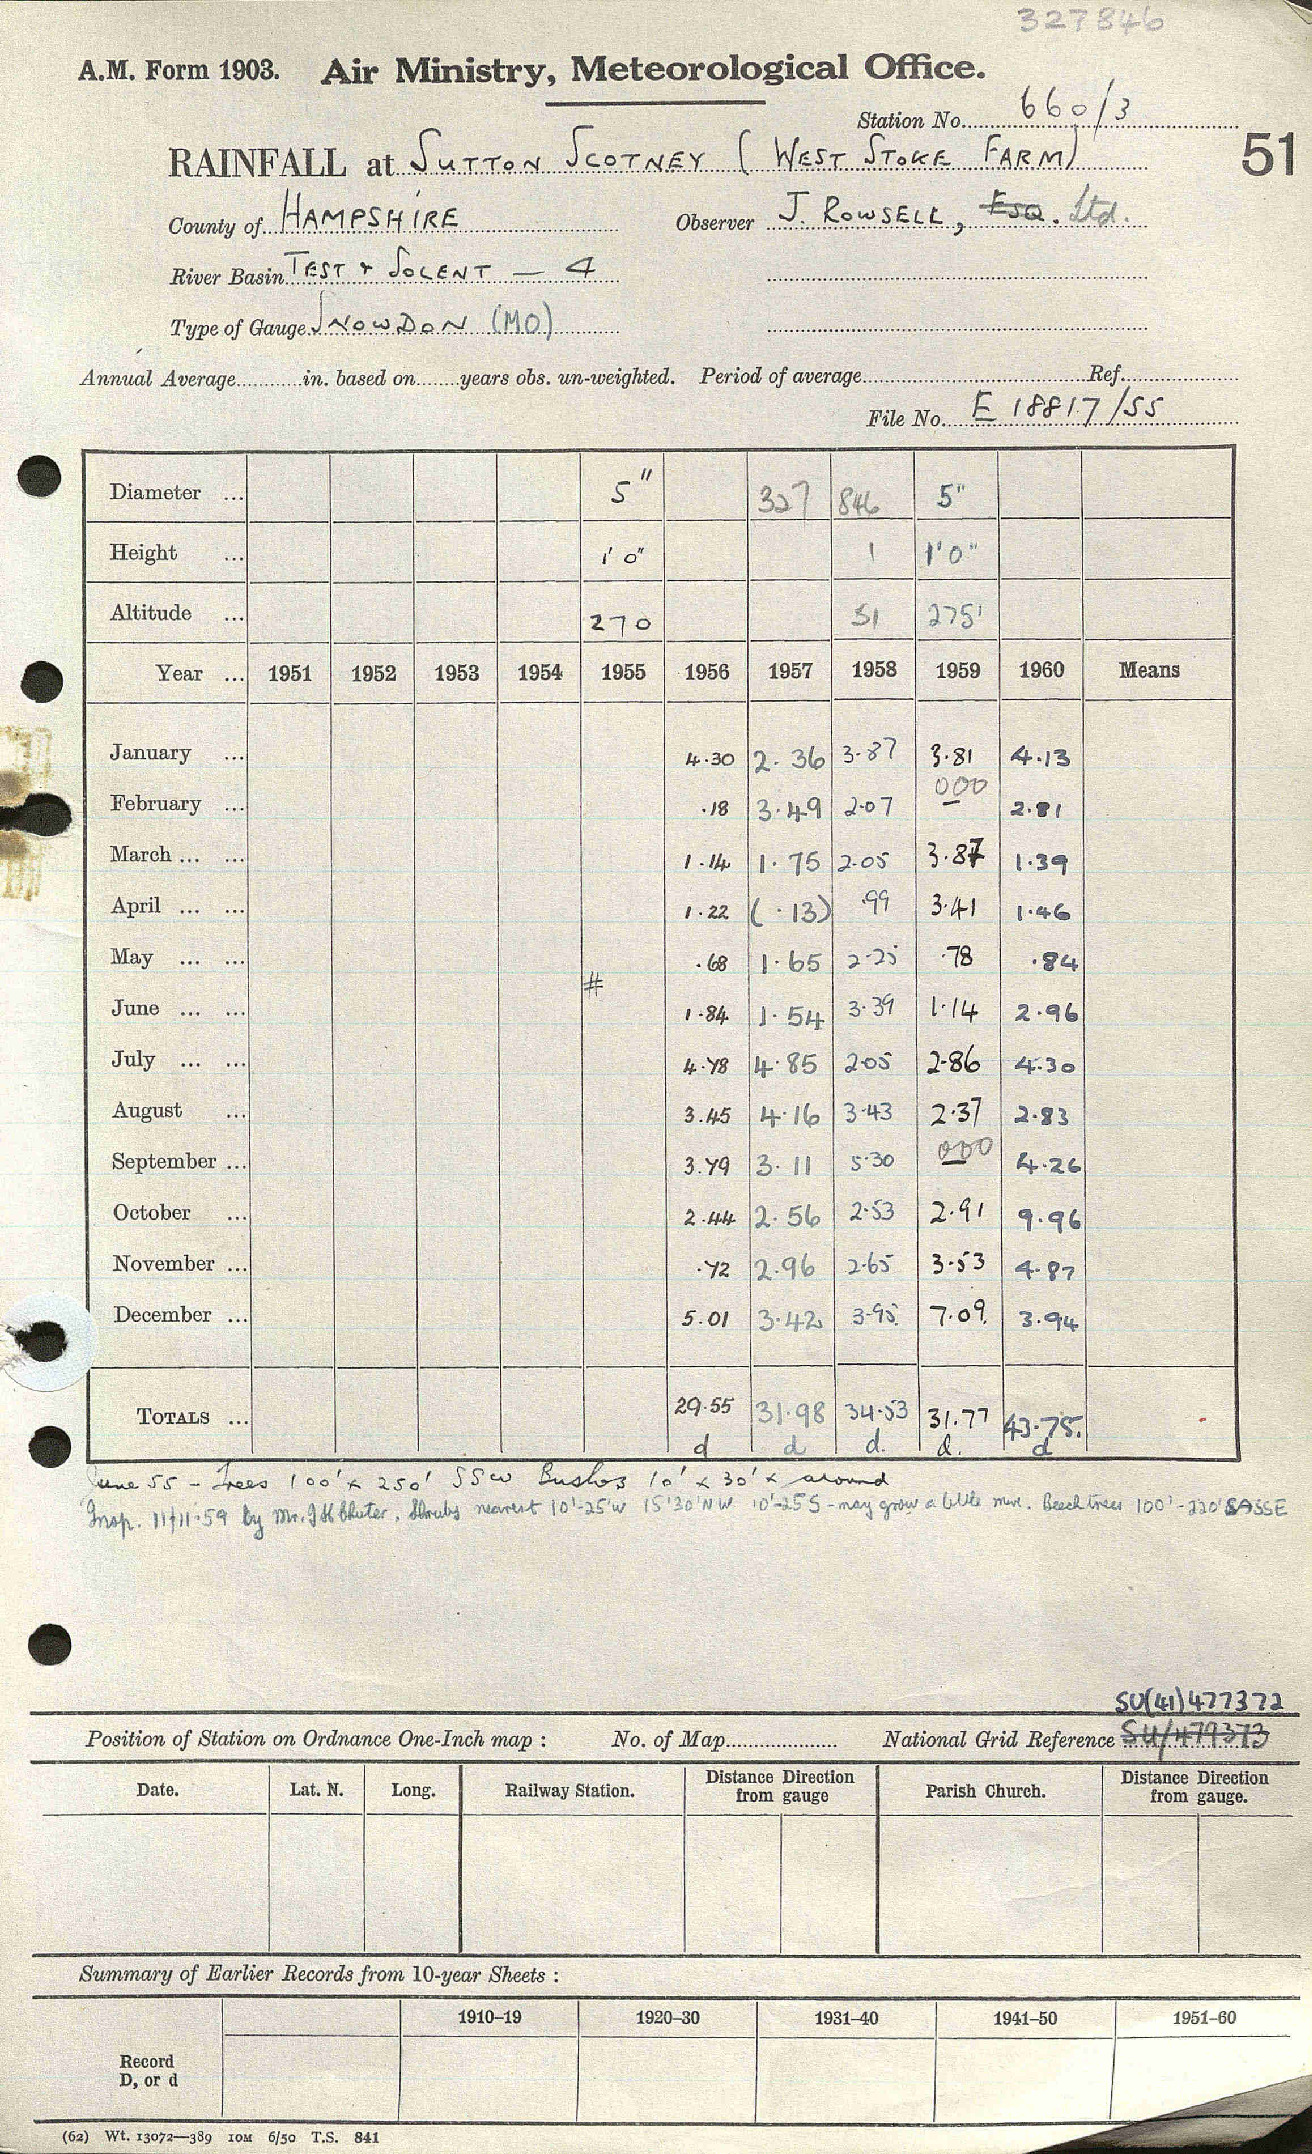 327846
A.M. Form 1903. Air Ministry, Meteorological Office.
Station No. 660/3
RAINFALL at SUTTON SCOTNEY (WEST STOKE FARM) 51
County of HAMPSHIRE Observer J. ROWSELL, ESQ. Ltd.
River Basin TEST & SOLENT — 4
Type of Gauge SNOWDON (MO)
Annual Average..........in. based on.......years obs. un-weighted. Period of average..........Ref..........
File No. E 18817/55
Diameter ... 5" 327 846 5"
Height ... 1'0" 1 1'0"
Altitude ... 270 51 275'
Year ... 1951 1952 1953 1954 1955 1956 1957 1958 1959 1960 Means
January ... 4.30 2.36 3.87 3.81 4.13
February ... .18 3.49 2.07 000 — 2.81
March ... ... 1.14 1.75 2.05 3.87 1.39
April ... ... 1.22 (.13) .99 3.41 1.46
May ... ... .68 1.65 2.25 .78 .84
#
June ... ... 1.84 1.54 3.39 1.14 2.96
July ... ... 4.78 4.85 2.05 2.86 4.30
August ... 3.45 4.16 3.43 2.37 2.83
September ... 3.79 3.11 5.30 000 — 4.26
October ... 2.44 2.56 2.53 2.91 9.96
November ... .72 2.96 2.65 3.53 4.87
December ... 5.01 3.42 3.95 7.09 3.94
TOTALS ... 29.55 31.98 34.53 31.77 43.75.
d d d. d. d
June 55 - Trees 100' x 250' SSW Bushes 10' x 30' x around
Insp. 11/11.59 by Mr. J H Chuter. Shrubs nearest 10'-25'W 15'30'NW 10'-25S - may grow a little more. Beech trees 100'-220' SSSE
SU(41)477372
Position of Station on Ordnance One-Inch map : No. of Map.......... National Grid Reference SU/479373
Date. Lat. N. Long. Railway Station. Distance Direction from gauge Parish Church. Distance Direction from gauge.
Summary of Earlier Records from 10-year Sheets :
1910–19 1920–30 1931–40 1941–50 1951–60
Record
D, or d
(62) Wt. 13072—389 10M 6/50 T.S. 841